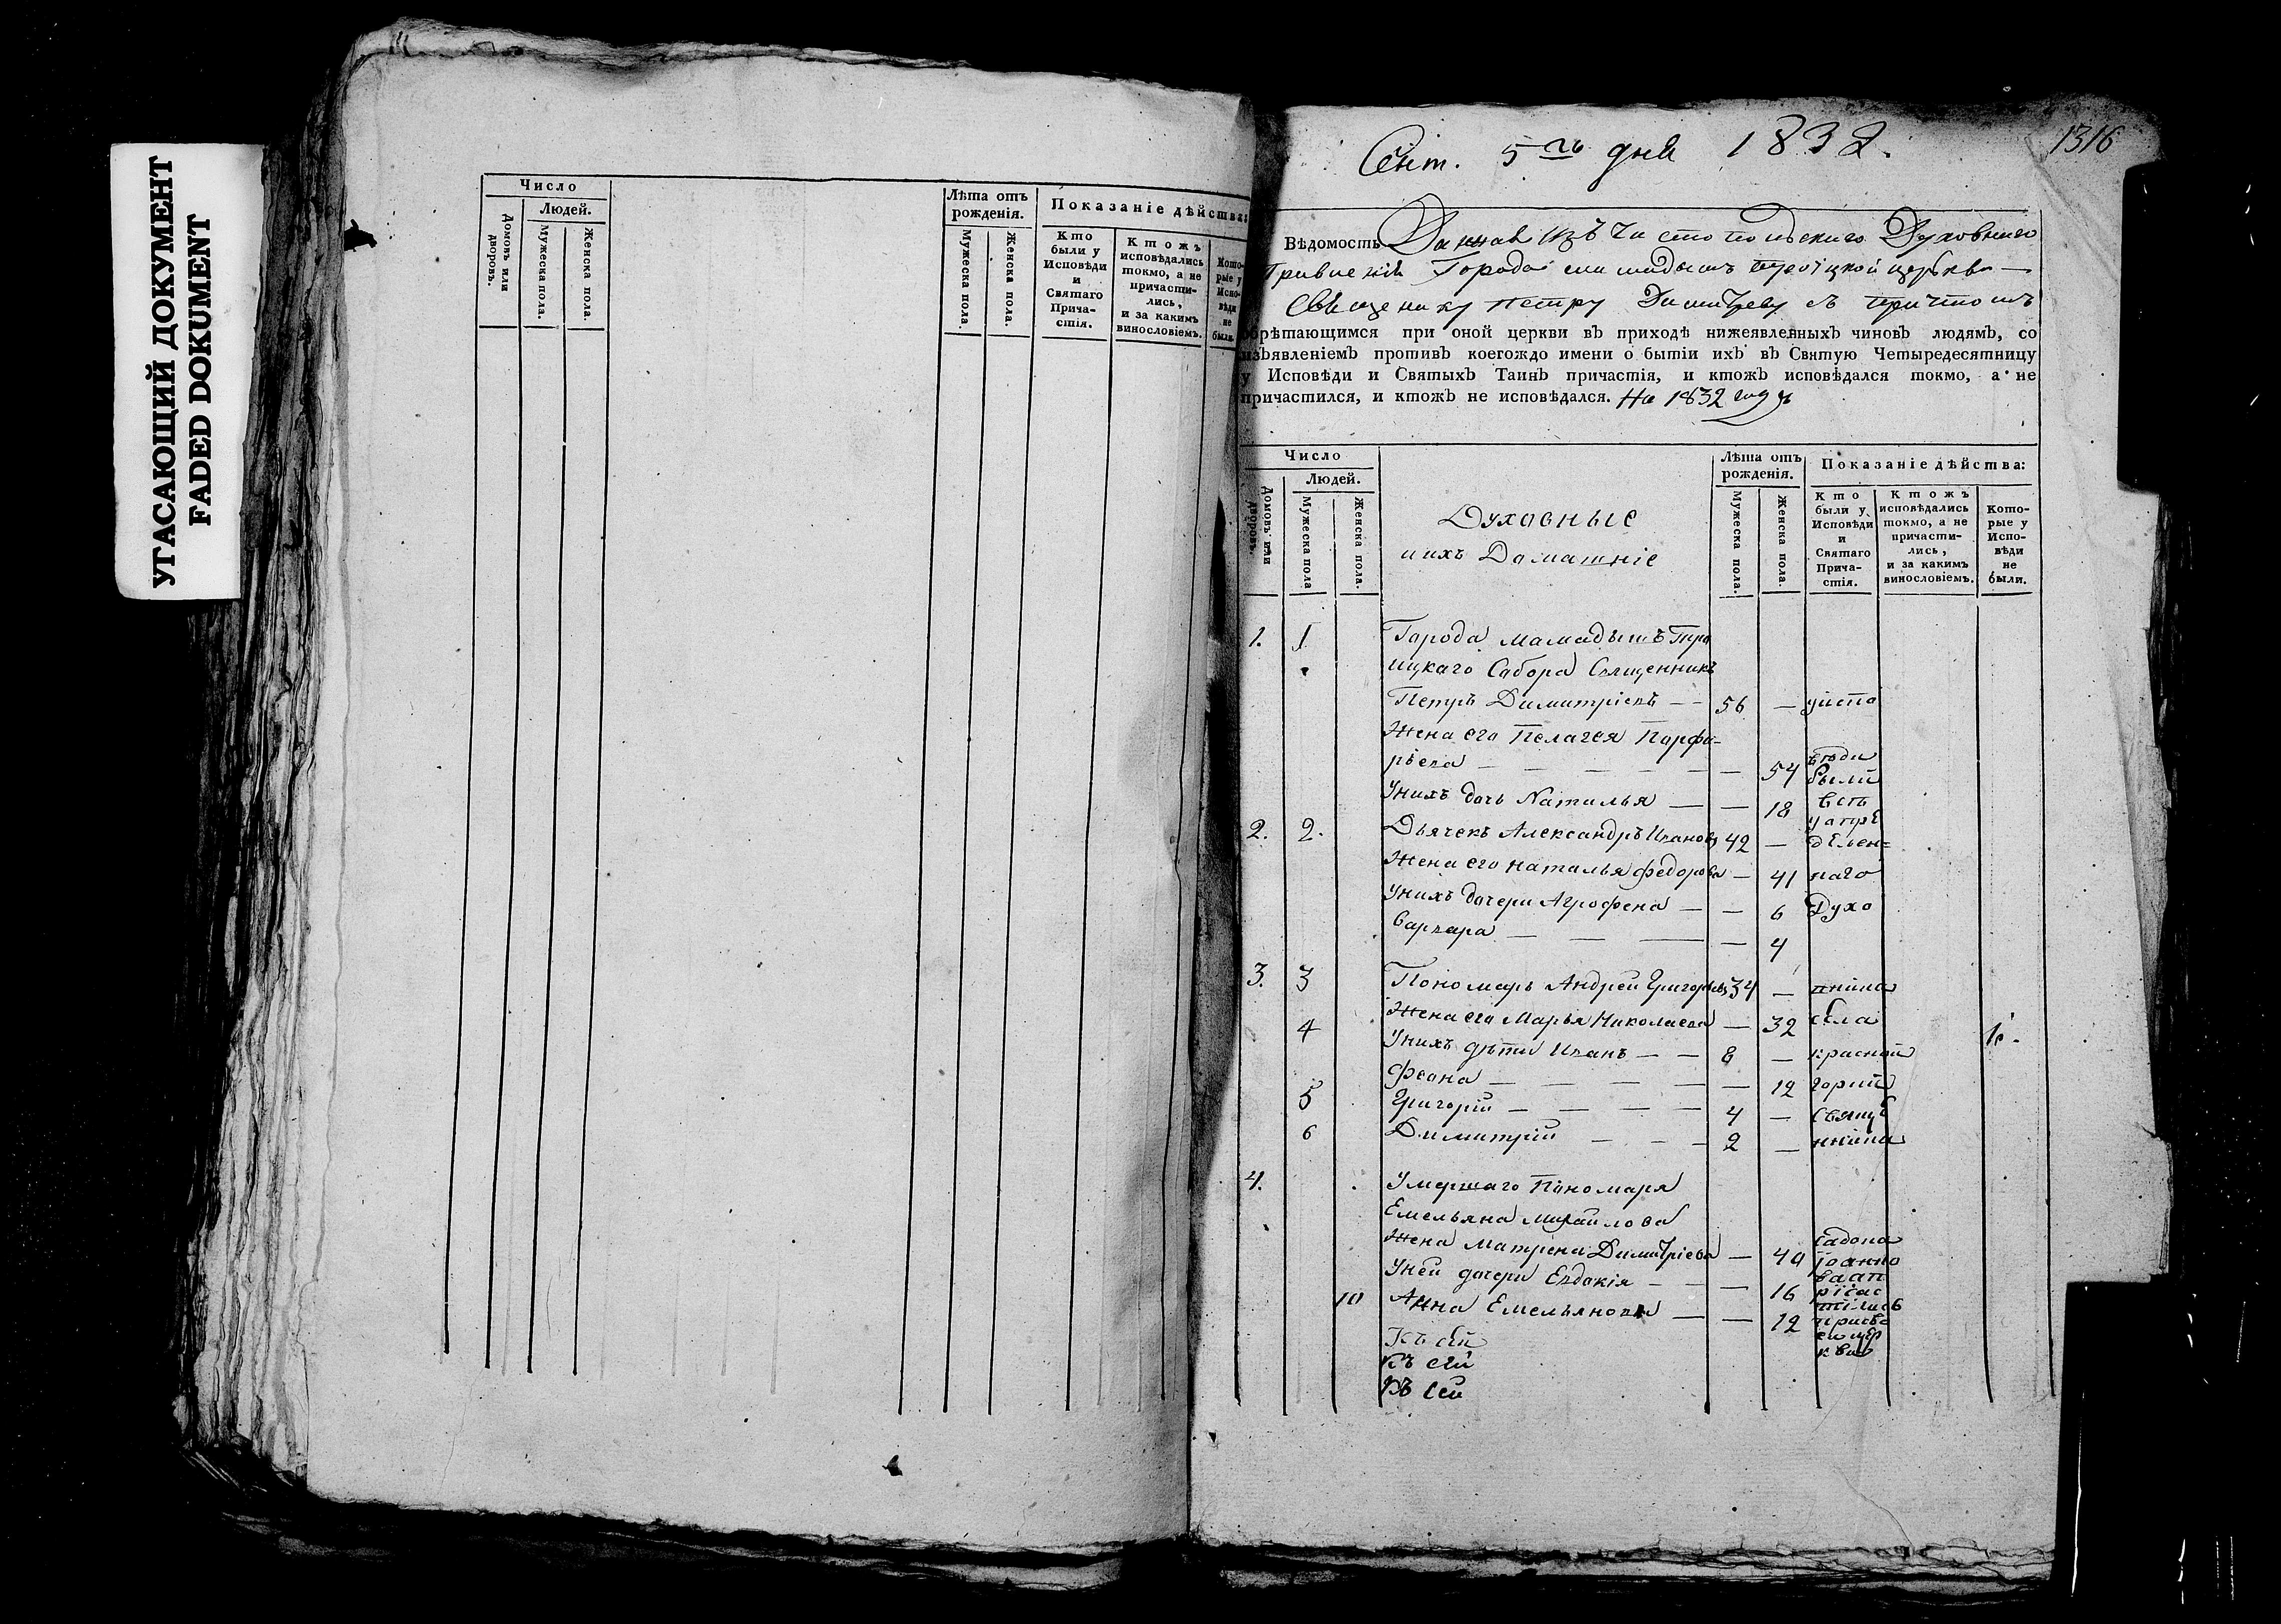 УГАСАЮЩИЙ ДОКУМЕНТ
FADED DOKUMENT
Число
Людей.
Домовъ или дворовъ.
Мужеска пола.
Женска пола.
Лѣта отъ рожденія.
Мужеска пола.
Женска пола.
Показаніе дѣйства:
Кто были у Исповѣди и Святаго Прича-стія.
Ктожъ исповѣдались токмо, а не причасти-лись, и за какимъ винословіемъ.
Кото-рые у Испо-вѣди не были.
Сент. 5го дня 1832.
1316
Вѣдомость Данная изъ Чистопольскаго Духовнаго
Правленія Города мамадышъ троицкой церкви —
Священику петру Димитреву съ притчомъ
обрѣтающимся при оной церкви въ приходѣ нижеявленныхъ чиновъ людямъ, со
изъявленіемъ противъ коегождо имени о бытіи ихъ въ Святую Четыредесятницу
у Исповѣди и Святыхъ Таинъ причастія, и ктожъ исповѣдался токмо, а не
причастился, и ктожъ не исповѣдался. На 1832 годъ
Число
Людей.
Домовъ или дворовъ.
Мужеска пола
Женска пола.
Духовные
и ихъ Домашніе
Лѣта отъ рожденія.
Мужеска пола.
Женска пола.
Показаніе дѣйства:
Кто были у Исповѣди и Святаго Прича-стія.
Ктожъ исповѣдались токмо, а не причасти-лись, и за какимъ винословіемъ.
Кото-рые у Испо-вѣди не были.
1. 1 Города мамадышъ Тро
ицкаго Сабора Священникъ
Петръ Димитріевъ — — 56 —
Жена его Пелагея Парфи-
рьева — — — — — — 54 были
Унихъ дочь Наталья — — 18
2. 2. Дьячекъ Александръ Ивановъ 42 — дѣлен=
Жена его наталья федорова — 41 наго
Унихъ дочери Агрофена — — 6 Духо
варвара — — — — 4
3. 3 Пономарь Андрей Григорьевъ 34 —
Жена его Марья Николаева — 32 села
4 Унихъ дѣти Иванъ — — 8 — красной
Феона — — — — — 12 горки
5 Григорій — — — — 4 — Свяще
6 Димитрій — — — 2 — нника
4. Умершаго Пономаря
Емельяна михайлова
Жена матрена Димитріева — 40
Уней дочери Евдокія — — 16
10 Анна Емельянова — — 12
Къ сей
Къ сей
Къ сей